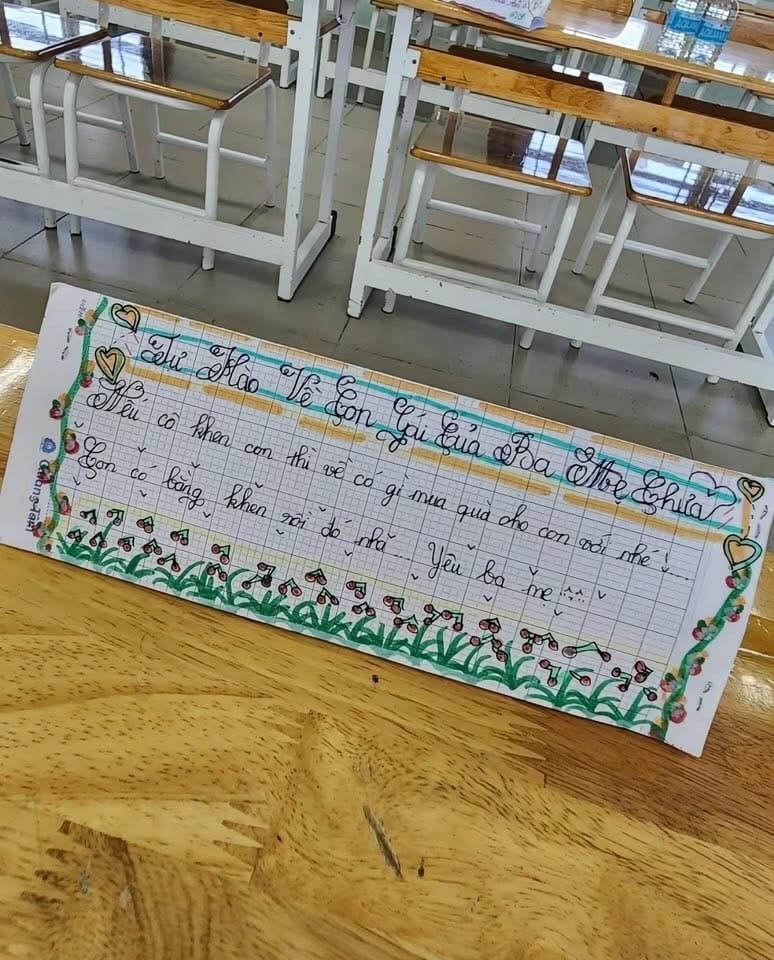 Tự Hào Về Con Gái Của Ba Mẹ Chưa
Nếu cô khen con thì về có gì mua quà cho con với nhé!...
Con có bằng khen rồi đó nha... Yêu ba mẹ